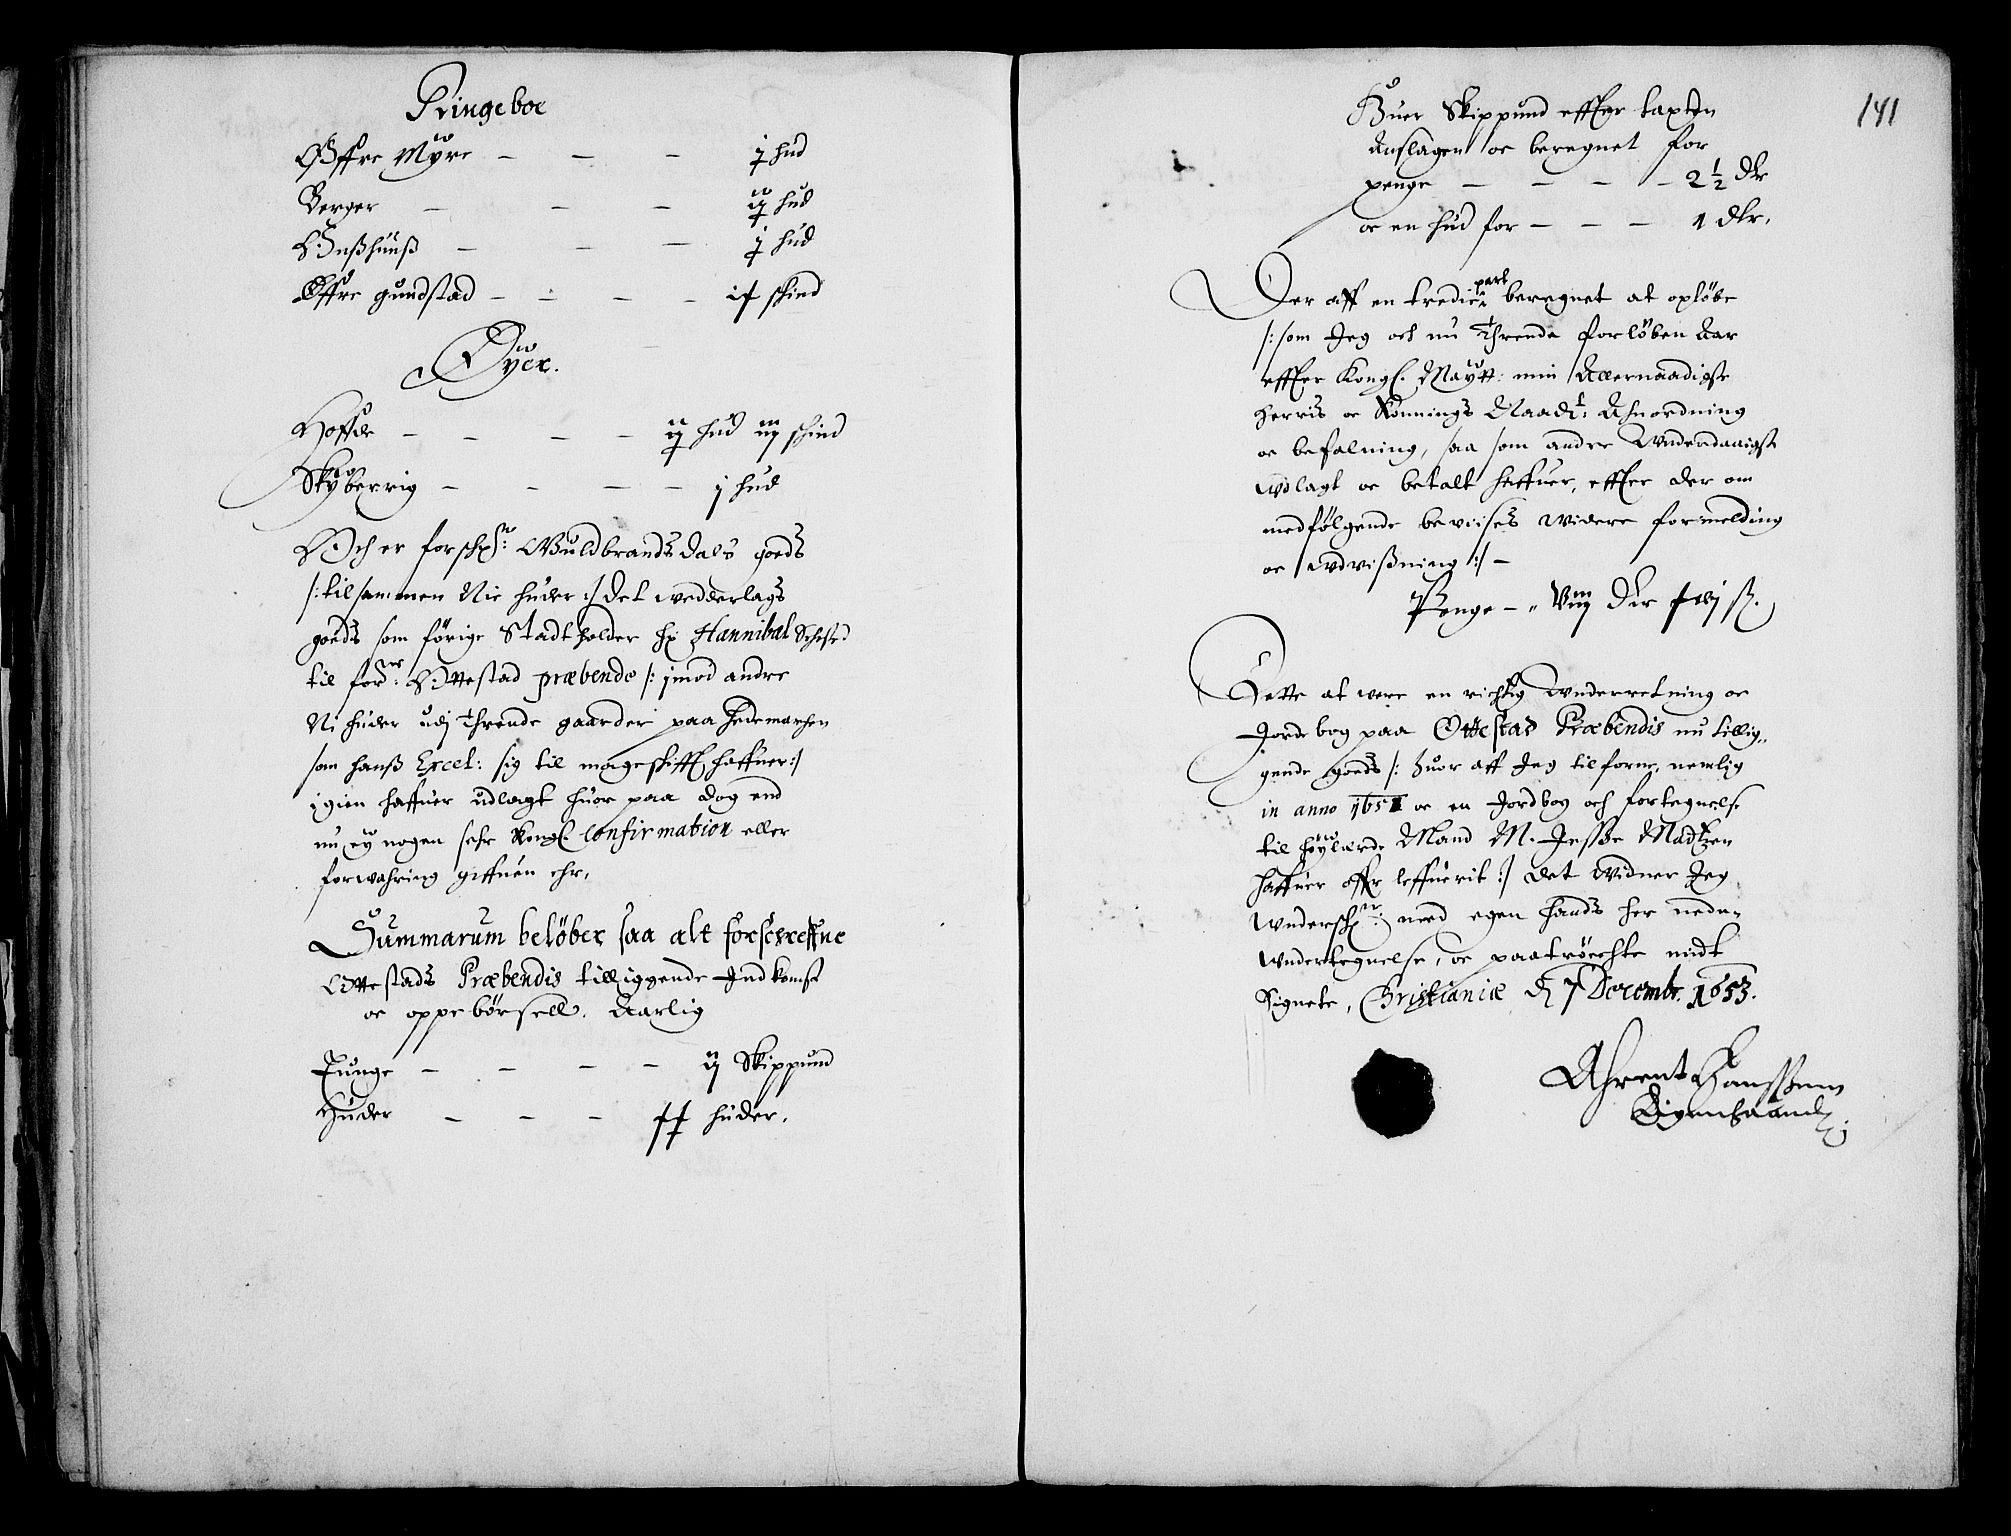 Ringeboe
Øffre Myre - - - j hud
Berger - - - ij hud
- - - j hud
Øffre gundstad - - - - skind
Øyer.
Hoffde - - - - ij hud iij skind
Skyberrig - - - - j hud
Och er forschr: Guldbrandsdals goeds
/: til sammen Nie huder :/ det wedderlags
goeds som förige Stadtholder Hr Hannibal Sehested
til forne: Ottestad præbende /: imod andre
Ni huder udj Thrende gaarder paa Hedemarchen
som hanß Excel: sig til mageskifft haffuer :/
igien haffuer udlagt huor paa dog end
nu ey nogen sehr Kongl. Confirmation eller
forwahring giffuen ehr.
Summarum belöber saa alt forschreffne
Ottestads Præbendis tilliggende Indkomst
oc oppebörsell. Aarlig
Tunge - - - - ij Skippund
Huder - - - huder.
141
Huer Skippund effter taxten
Anslagen oc beregnet for
penge - - - - 2 1/2 Dlr
oc en hud for - - - 1 Dlr.
Der aff en tredie part beregnet at oplöbe
/: som Jeg och nu Threnda forlöben Aar
effter Kongl. Maytt: min Allernaadigste
Herris oc Konnings Naadt: Ahnordning
oc befalning, saa som andre Wnderdanigst
wdlagt oc betalt haffuer, effter der om
medfölgende beviises widere formelding
oc Udvißning :/ -
Penge - Viij Dlr
Dette at were en richtig Wnderretning oc
Jordebog paa Ottestad Præbendis nu tillig-
gende goeds /: huor aff Jeg tilforne, nemlig
in anno 1651 oc en Jordbog och fortegnelse
til höylærde Mand M. Jesße Madtzen
haffuer offr leffuerit :/ det Widner Jeg
Wnderschr: med egen Hands her neden
Wndertegnelse, oc paatröchte mit
Signete, Christianiæ d 7 Decembr. 1653.
Ahrent Hanssenn
Eigenhaand